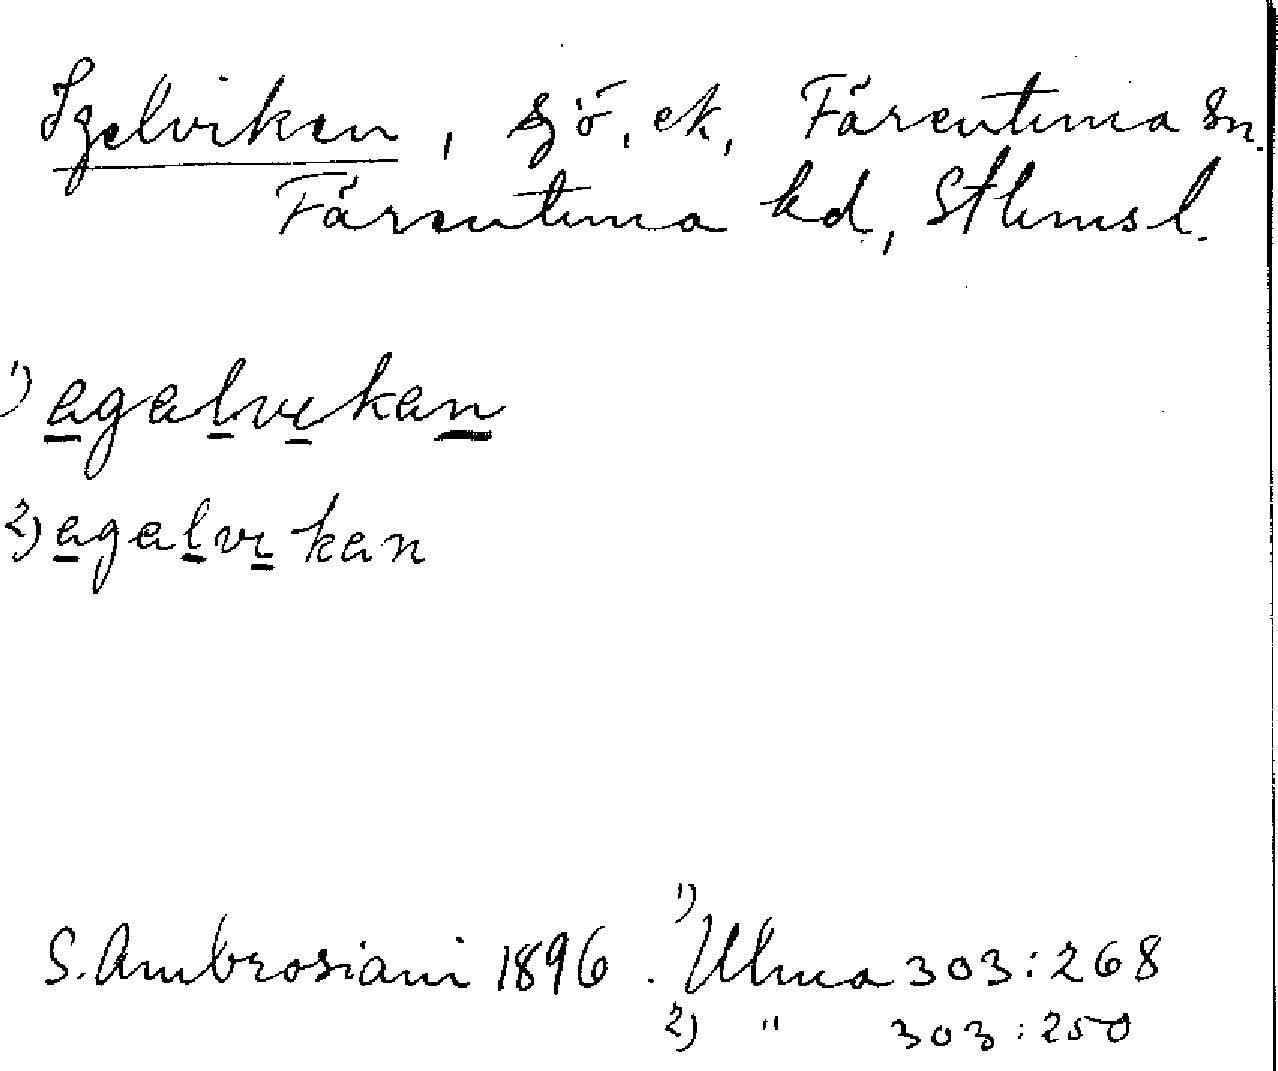 Igelviken, sjö, ek, Färentuna sn.
Färentuna hd, Sthmsl.
1) agalvikan
2) agalvikan
S. Ambrosiani 1896. 1) Ulma 303:268
2) " 303:250